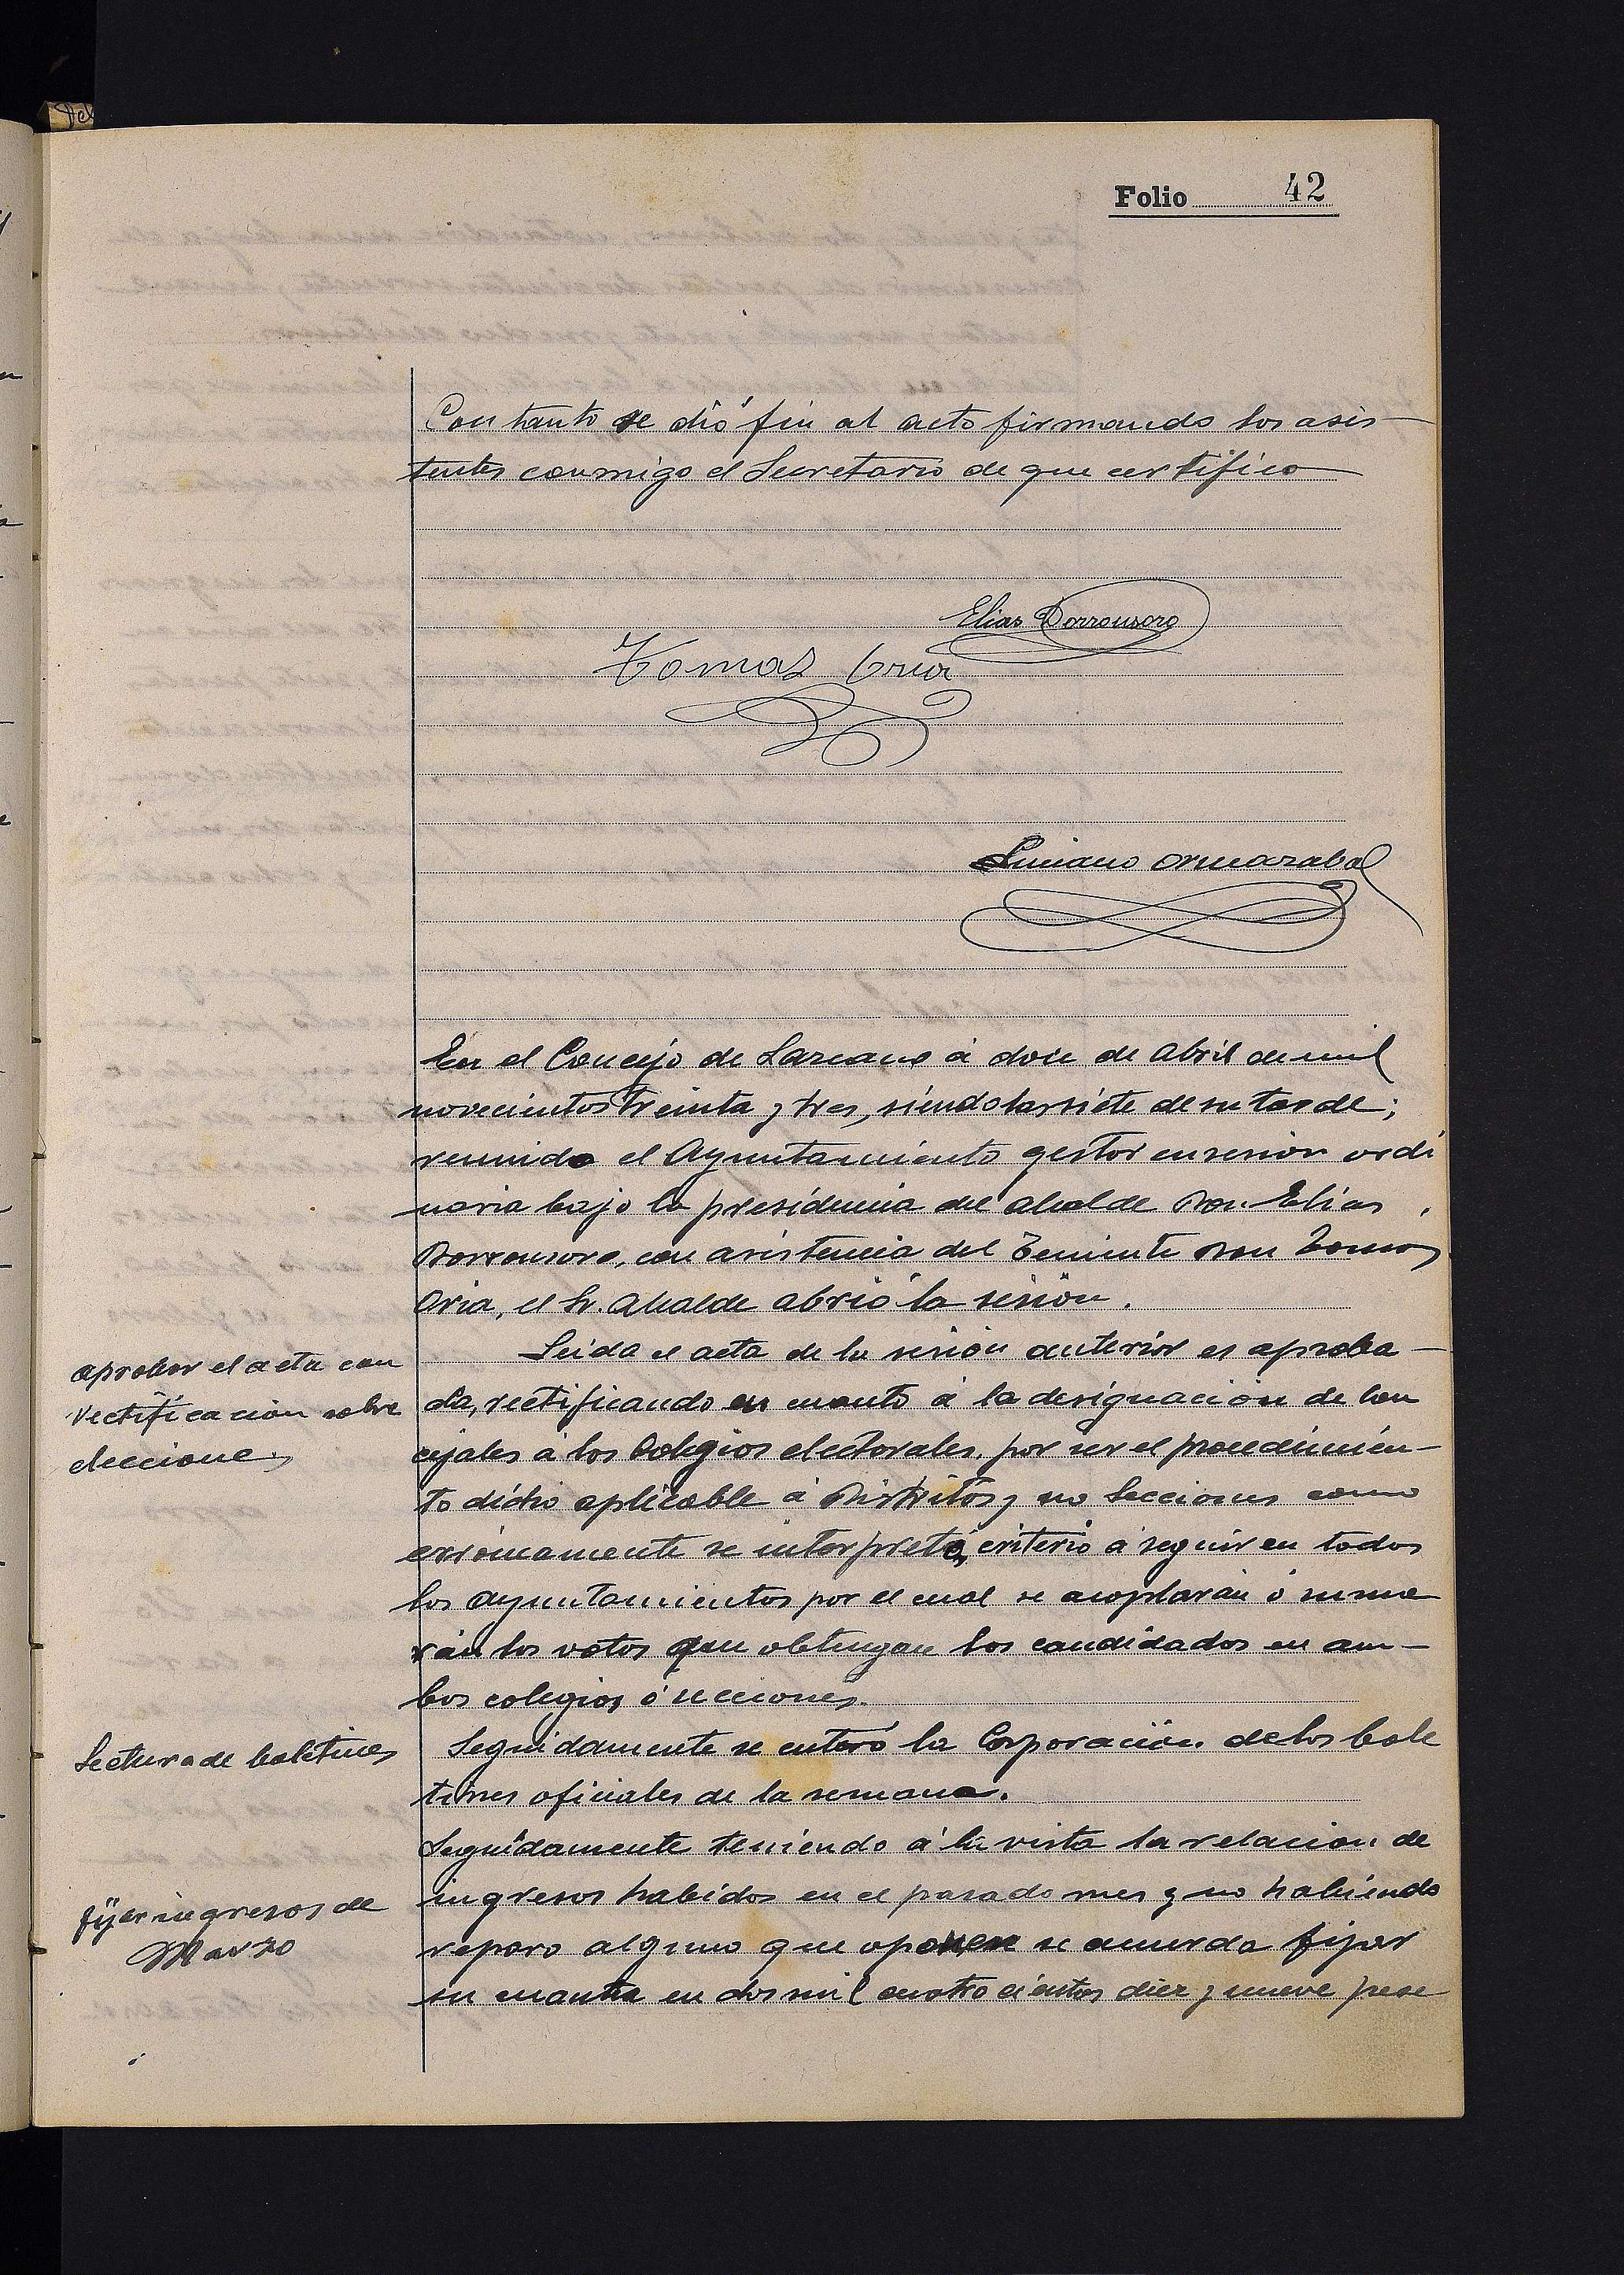 Folio 42
Con tanto se dió fin al acto firmando los asis-
tentes conmigo el Secretario de que certifico
Elias Dorronsoro
Tomas Oria
Luciano Ormazabal
En el Concejo de Lazcano á doce de Abril de mil
novecientos treinta y tres, siendo las siete de su tarde;
reunido el Ayuntamiento gestor en sesión ordi
naria bajo la presidencia del Alcalde Don Elias
Dorronsoro, con asistencia del Teniente Don Tomas
Oria, el Sr. Alcalde abrió la sesión.
aprobar el acta con
rectificacion sobre
elecciones
Leida el acta de la sesión anterior es aproba-
da, rectificando en cuanto á la designación de con
cejales á los Colegios electorales, por ser el procedimien-
to dicho aplicable á Distritos y no Secciones como
erróneamente se interpretó, criterio á seguir en todos
los Ayuntamientos por el cual se acoplarán ó suma
rán los votos que obtengan los candidados en am-
bos colegios ó secciones.
Lectura de boletines
Seguidamente se enteró la Corporación de los bole
tines oficiales de la semana.
fijar ingresos de
Marzo
Seguidamente teniendo á la vista la relación de
ingresos habidos en el pasado mes y no habiendo
reparo alguno que oponer se acuerda fijar
su cuantia en dos mil cuatrocientos diez y nueve pese